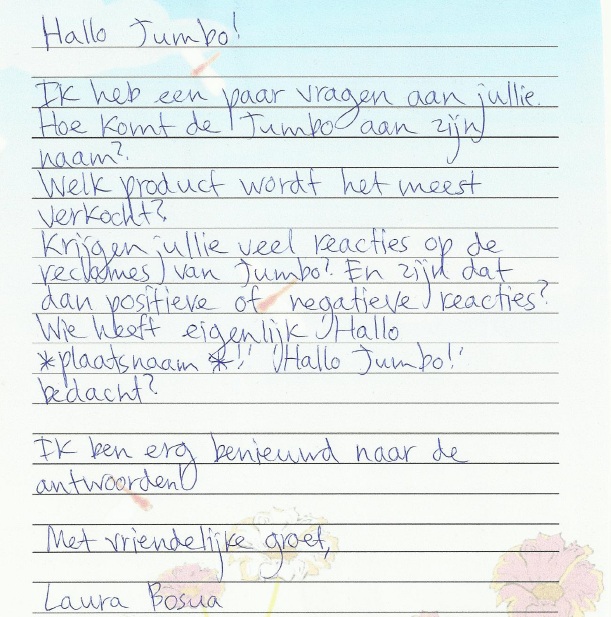 Hallo Jumbo!
Ik heb een paar vragen aan jullie.
Hoe komt de Jumbo aan zijn
naam?
Welk product wordt het meest
verkocht?
Krijgen jullie veel reacties op de
reclames van Jumbo? En zijn dat
dan positieve of negatieve reacties?
Wie heeft eigenlijk 'Hallo
*plaatsnaam*!' 'Hallo Jumbo!'
bedacht?
Ik ben erg benieuwd naar de
antwoorden!
Met vriendelijke groet,
Laura Bosua